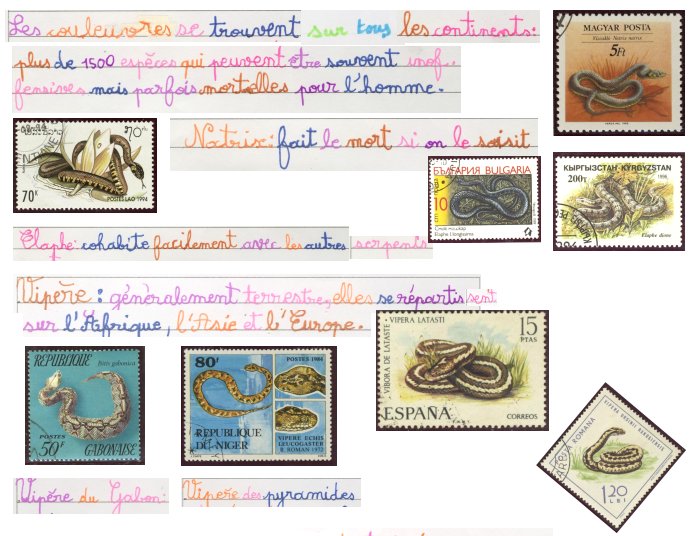 Les couleuvres se trouvent sur tous les continents:
plus de 1500 espèces qui peuvent être souvent inof..
fensives mais parfois mortelles pour l'homme.
MAGYAR POSTA
Vízisikló Natrix natrix
5Ft
70K
POSTES LAO 1994
Natrix: fait le mort si on le saisit
БЪЛГАРИЯ BULGARIA
10
Смок мишкар
Elaphe longissima
КЫРГЫЗСТАН KYRGYZSTAN
200T
1996
Elaphe dione
Elaphe: cohabite facilement avec les autres serpents
Vipère : génèralement terrestre, elles se répartissent
sur l'Afrique, l'Asie et l'Europe.
REPUBLIQUE
Bitis gabonica
POSTES
50F
GABONAISE
80F
POSTES 1984
REPUBLIQUE
DU NIGER
VIPERE ECHIS
LEUCOGASTER
R. ROMAN 1972
VIBORA DE LATASTE - VIPERA LATASTI
15
PTAS
ESPAÑA
CORREOS
F.N.M.T.
ROMANA
VIPERA URSINII
1,20
LEI
Vipére du Gabon:
Vipère des pyramides